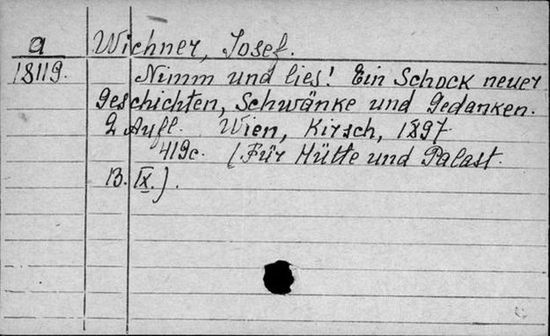 a Wichner, Josef.
18119. Nimm und lies! Ein Schock neuer
Geschichten, Schwänke und Gedanken.
2 Aufl. Wien, Kirsch, 1897
419c. (Für Hütte und Palast.
B. IX.).